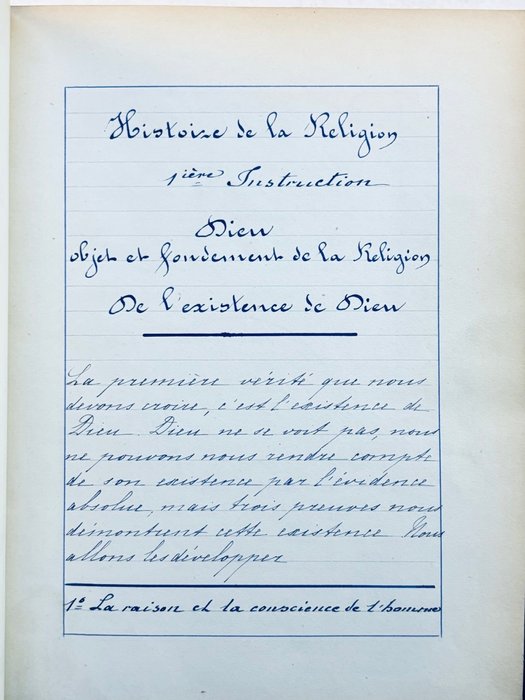 Histoire de la Religion
1ière Instruction
Dieu
objet et fondement de la Religion
De l'existence de Dieu
La première vérité que nous
devons croire, c'est l'existence de
Dieu. Dieu ne se voit pas, nous
ne pouvons nous rendre compte
de son existence par l'évidence
absolue, mais trois preuves nous
démontrent cette existence Nous
allons les développer
1º La raison et la conscience de l'homme